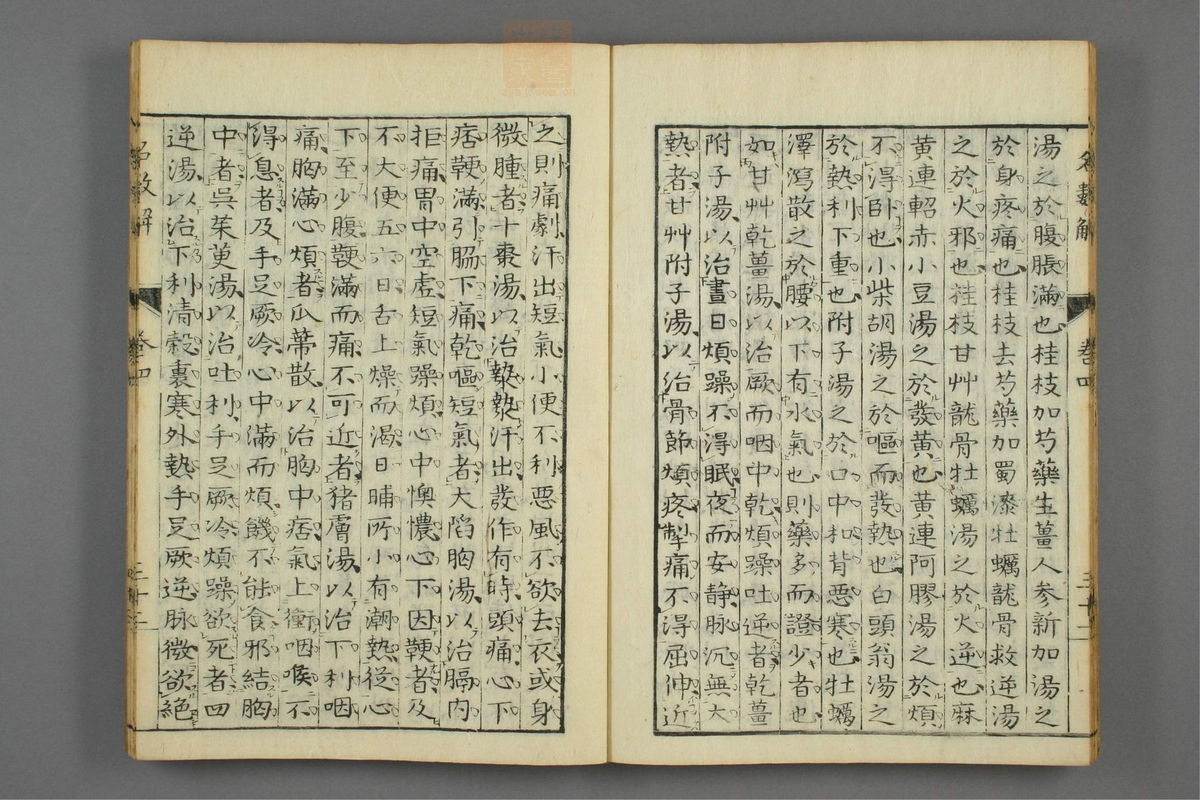 名數解 卷四 三十二
湯之於腹脹滿也桂枝加芍藥生薑人參新加湯之
於身疼痛也桂枝去芍藥加蜀漆牡蠣龍骨救逆湯
之於火邪也桂枝甘艸龍骨牡蠣湯之於火逆也麻
黃連軺赤小豆湯之於發黃也黃連阿膠湯之於煩
不得臥也小柴胡湯之於嘔而發熱也白頭翁湯之
於熱利下重也附子湯之於口中和背惡寒也牡蠣
澤瀉散之於腰以下有水氣也則藥多而證少者也
如甘艸乾薑湯以治厥而咽中乾煩躁吐逆者乾薑
附子湯以治晝日煩躁不得眠夜而安靜脉沉無大
熱者甘艸附子湯以治骨節煩疼掣痛不得屈伸近
之則痛劇汗出短氣小便不利惡風不欲去衣或身
微腫者十棗湯以治漐漐汗出發作有時頭痛心下
痞鞕滿引脇下痛乾嘔短氣者大陷胸湯以治膈內
拒痛胃中空虛短氣躁煩心中懊憹心下因鞕者及
不大便五六日舌上燥而渴日晡所小有潮熱從心
下至少腹鞕滿而痛不可近者豬膚湯以治下利咽
痛胸滿心煩者瓜蒂散以治胸中痞氣上衝咽喉不
得息者及手足厥冷心中滿而煩饑不能食邪結胸
中者吳茱萸湯以治吐利手足厥冷煩躁欲死者四
逆湯以治下利清穀裏寒外熱手足厥逆脉微欲絕
名數解 卷四 三十三